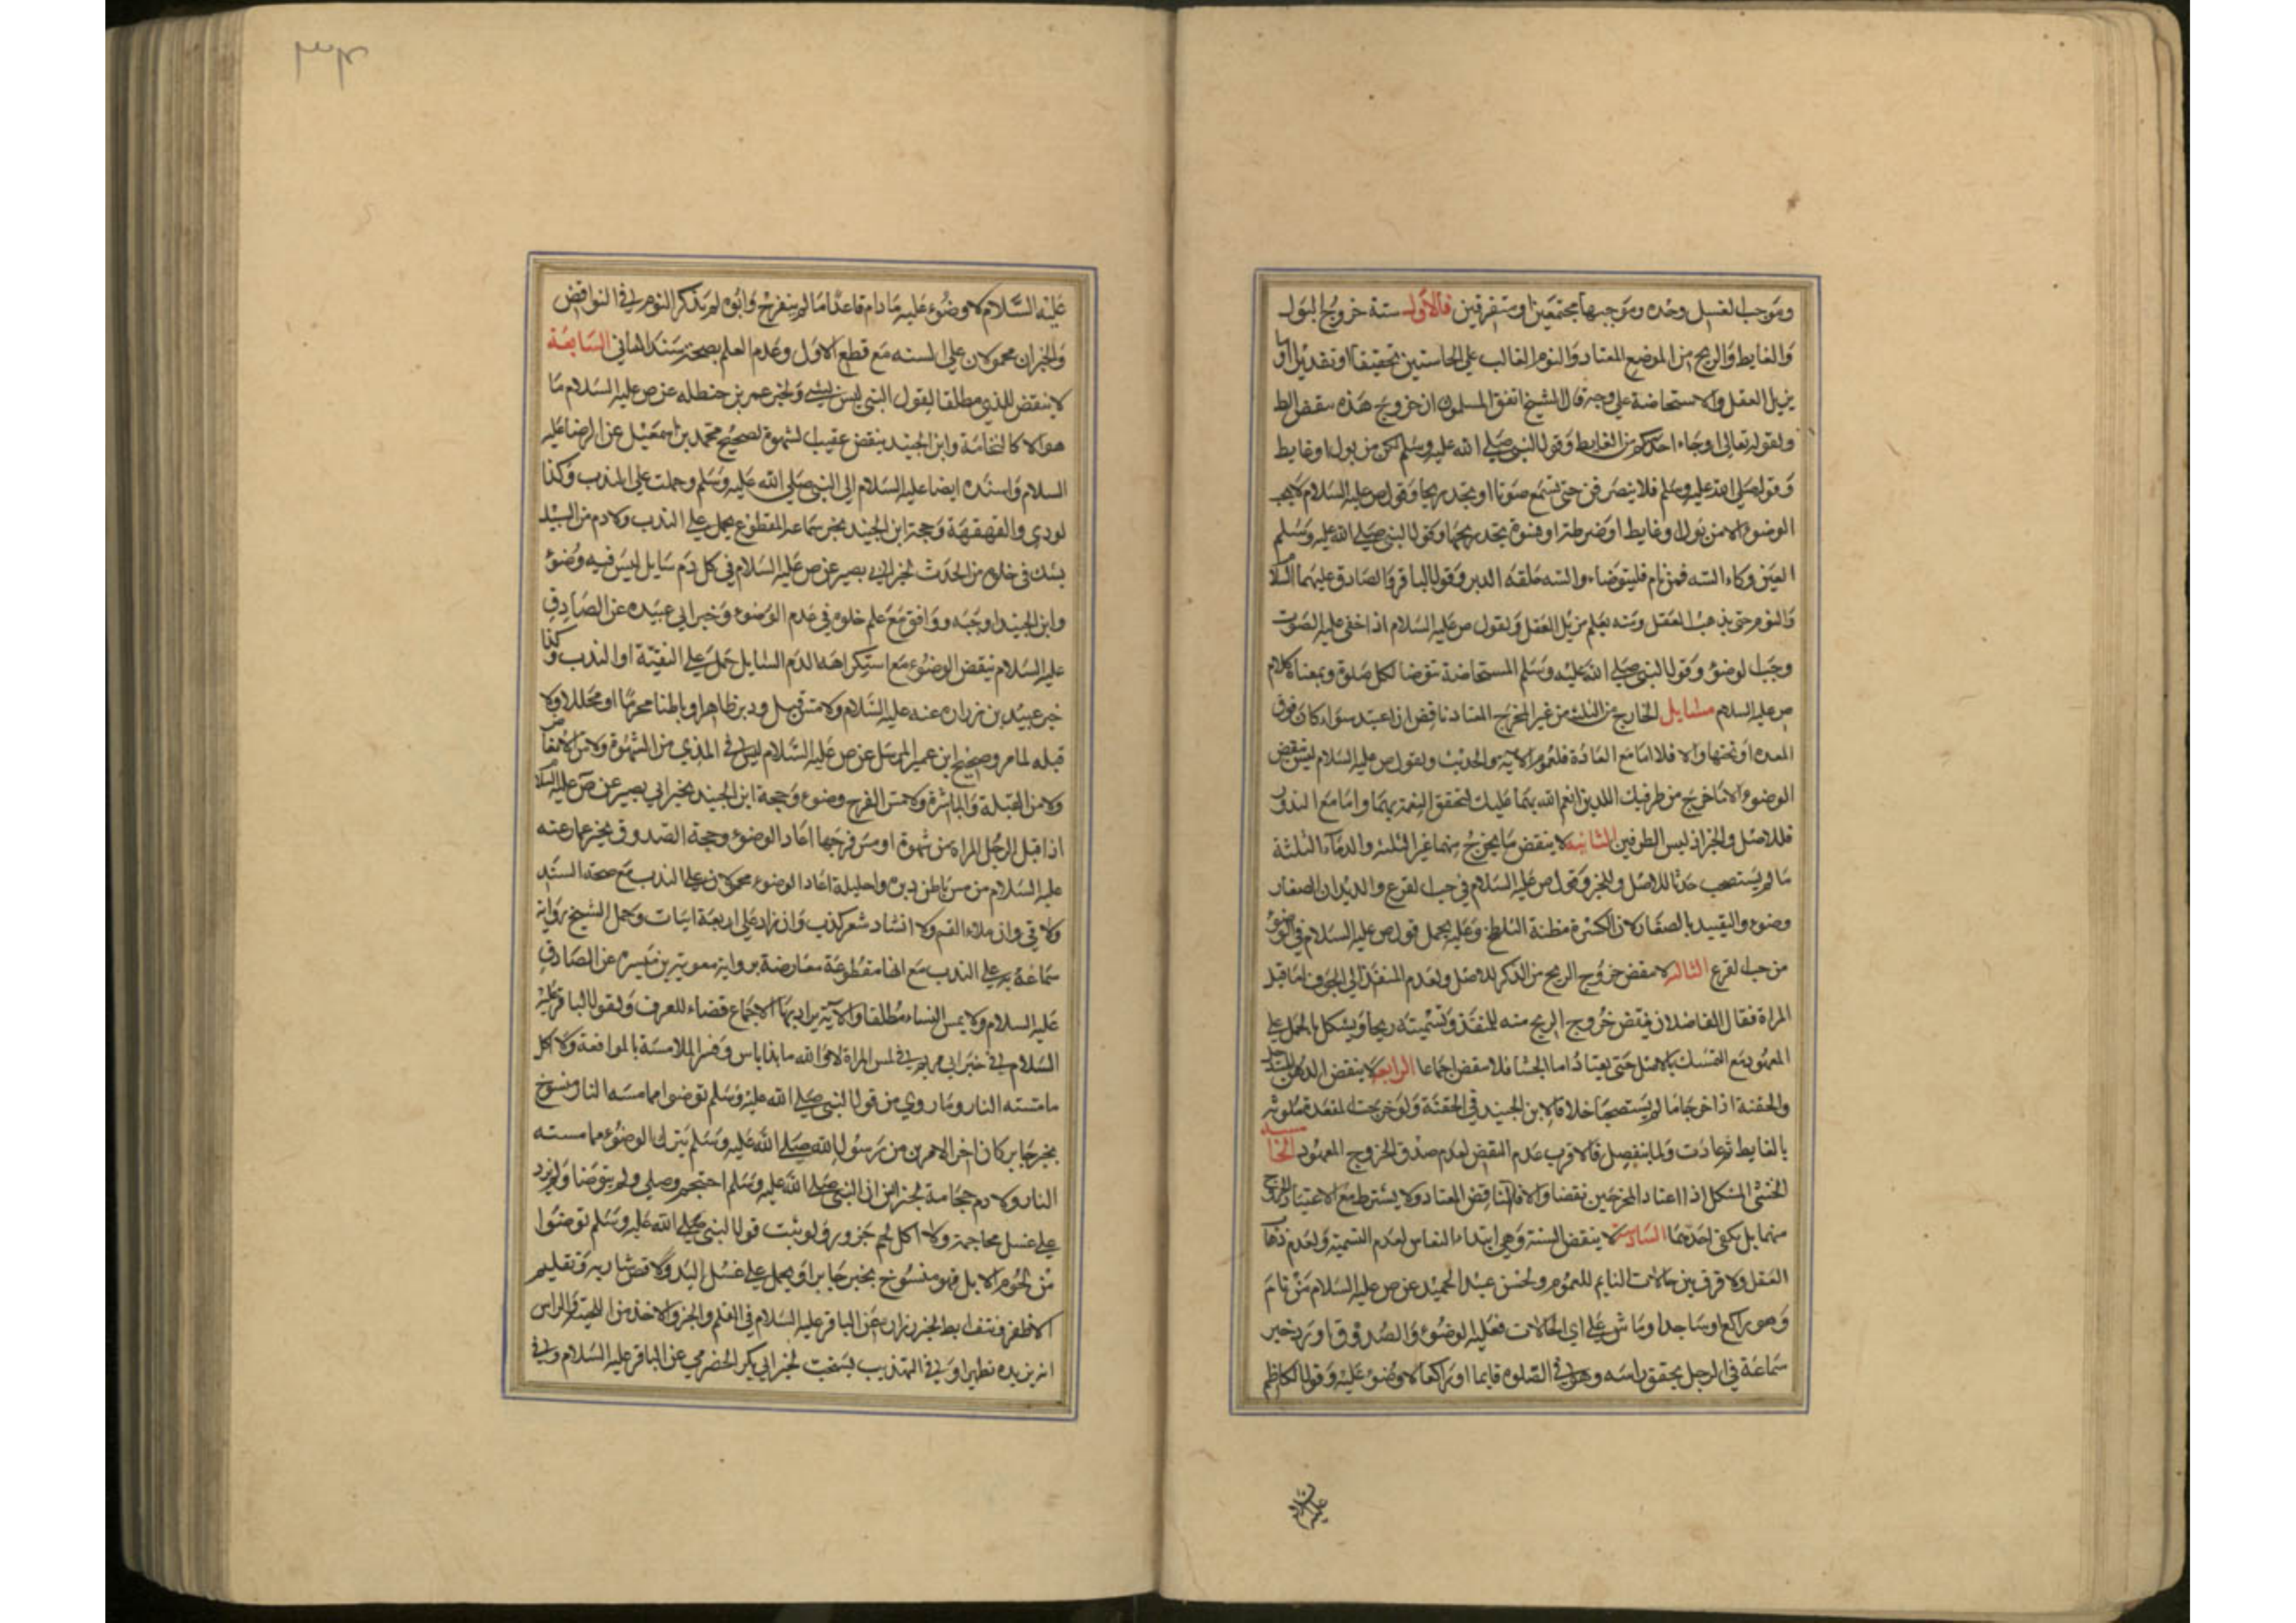 وموجب الغسل وحده وموجبهما مجتمعين او متفرقين فالاول ستة خروج البول
والغايط والريح من الموضع المعتاد والنوم الغالب علي الحاستين تحقيقا او تقديرا وما
يزيل العقل والاستحاضة علي وجه قال الشيخ اتفق المسلمون ان خروج هذه ينقض الط
ولقوله تعالي اوجاء احد منكم من الغايط وقول النبي صلي الله عليه وسلم لكن من بول او غايط
وقوله صلي الله عليه وسلم فلا ينصرفن حتي تسمع صوتا او يجد ريحا وقول ص عليه السلام لا يجب
الوضوء الا من بول او غايط او ضرطة او فسوة يجد ريحها وقول النبي صلي الله عليه وسلم
العين وكاء السه فمن نام فليتوضاء والسه حلقه الدبر وقول الباقر والصادق عليهما السلا
والنوم حتي يذهب العقل ومنه يعلم مزيل العقل ولقول ص عليه السلام اذا خفي عليه الصوت
وجب الوضوء وقول النبي صلي الله عليه وسلم المستحاضة تتوضا لكل صلوة وبمعناه كلام
ص عليه السلام مسايل الخارج من الثلثة من غير المخرج المعتاد ناقض ان اعتيد سواء كان فوق
المعده او تحتها والا فلا اما مع العادة فلعموم الاية والحديث ولقول ص عليه السلام ليس ينقض
الوضوء الا ما خرج من طرفيك اللذين انعم الله بهما عليك لتحقق النعمة بهما واما مع الندور
فللاصل والخبر اذ ليس الطرفين الثانية لا ينقض ما يخرج منهما غير الثلثة والدماء الثلثة
ما لم يستصحب حدثا للاصل والخبر وقول ص عليه السلام في حب القرع والديدان الصغار
وضوء والتقييد بالصغار لان الكثرة مظنة التلطخ وعليه يحمل قول ص عليه السلام في الوضوء
من حب القرع الثالثة لا ينقض خروج الريح من الذكر للاصل ولعدم المنفذ الي الجوف اما قبل
المراة فقال الفاضلان ينقض خروج الريح منه للمنفذ وتسميته ريحا ويشكل بالحمل علي
المعهود مع التمسك بالاصل حتي يعتاد اما الجشا فلا ينقض اجماعا الرابعة لا ينقض الدهن
والحقنة اذا خرجا ما لم يستصحبا خلافا لابن الجنيد في الحقنة ولو خرجت المقعدة ملوثة
بالغايط ثم عادت ولما ينفصل فالاقرب عدم النقض لعدم صدق الخروج المعهود الخامسة
الخنثي المشكل اذا اعتاد المخرجين نقضا والا فالناقض المعتاد ولا يشترط مع الاعتياد الخروج
منهما بل يكفي احدهما السادسة لا ينقض السنة وهي ابتداء النعاس لعدم التسمية ولعدم ذهاب
العقل ولا فرق بين حالات النايم للعموم ولحسن عبد الحميد عن ص عليه السلام من نام
وهو راكع او ساجد او ماش علي اي الحالات فعليه الوضوء والصدوق اورد خبر
سماعة في الرجل يخفق راسه وهو في الصلوه قايما او راكعا لا وضوء عليه وقول الكاظم
عليه السلام لا وضوء عليه مادام قاعدا ما لم ينفرج وابوه لم يذكر النوم في النواقض
والخبران محمولان علي السنه مع قطع الاول وعدم العلم بصحة سند الثاني السابعة
لا ينقض المذي مطلقا لقول النبي ليس بشيء ولخبر عمر بن حنظله عن ص عليه السلام ما
هو الا كالنخامة وابن الجنيد ينقض عقيب الشهوة لصحيح محمد بن اسمعيل عن الرضا عليه
السلام واسنده ايضا عليه السلام الي النبي صلي الله عليه وسلم وحملت علي الندب وكذا
لودي والقهقهة وحجة ابن الجنيد بخبر سماعه المقطوع يحمل علي الندب ولا دم من السبيلين
يشك في خلوه من الحدث لخبر ابي بصير عن ص عليه السلام في كل دم سايل ليس فيه وضوء
وابن الجنيد اوجبه ووافق مع علم خلوه في عدم الوضوء وخبر ابي عبيده عن الصادق
عليه السلام ينقض الوضوء مع استكراهه الدم السايل حمل علي التقية او الندب وكذا
خبر عبيد بن زراره عنه عليه السلام ولا مس قبل ودبر ظاهرا وباطنا محرما او محللا ولا
قبله لما مر وصحيح ابن عمير المرسل عن ص عليه السلام ليس في المذي من الشهوة ولا من الانعاظ
ولا من القبلة والمباشرة ولا مس الفرج وضوء وحجة ابن الجنيد بخبر ابي بصير عن ص عليه السلا
اذا قبل الرجل المراه من شهوة او مس فرجها اعاد الوضوء وحجة الصدوق بخبر عمار عنه
عليه السلام من مس باطن دبره واحليله اعاد الوضوء محمولان علي الندب مع صحة السند
ولا قي وان ملاء الفم ولا انشاد شعر كذب وان زاد علي اربعة ابيات وحمل الشيخ رواية
سماعة به علي الندب مع انها مقطوعة معارضة برواية معوية بن ميسره عن الصادق
عليه السلام ولا يمس النساء مطلقا والآية يراد بها الاجماع قضاء للعرف ولقول الباقر عليه
السلام في خبر ابي مريم في لمس المراة لا والله ما بذا باس وفسر الملامسة بالمواقعة ولا اكل
ما مسته النار وما روي من قول النبي صلي الله عليه وسلم توضوا مما مسته النار منسوخ
بخبر جابر كان اخر الامرين من رسول الله صلي الله عليه وسلم ترك الوضوء مما مسته
النار ولا دم حجامة لخبر انس ان النبي صلي الله عليه وسلم احتجم وصلي ولم يتوضا ولم يزد
علي غسل محاجمه ولا اكل لحم جزور ولو ثبت قول النبي صلي الله عليه وسلم توضئوا
من لحوم الابل فهو منسوخ بخبر جابر او يحمل علي غسل اليد ولا قص شاربه وتقليم
الاظفر ونتف ابط لخبر زرارة عن الباقر عليه السلام في القلم والجز والاخذ من اللحية والراس
انه يزيده تطهيرا وفي التهذيب ليستحب لخبر ابي بكر الحضرمي عن الباقر عليه السلام وفي